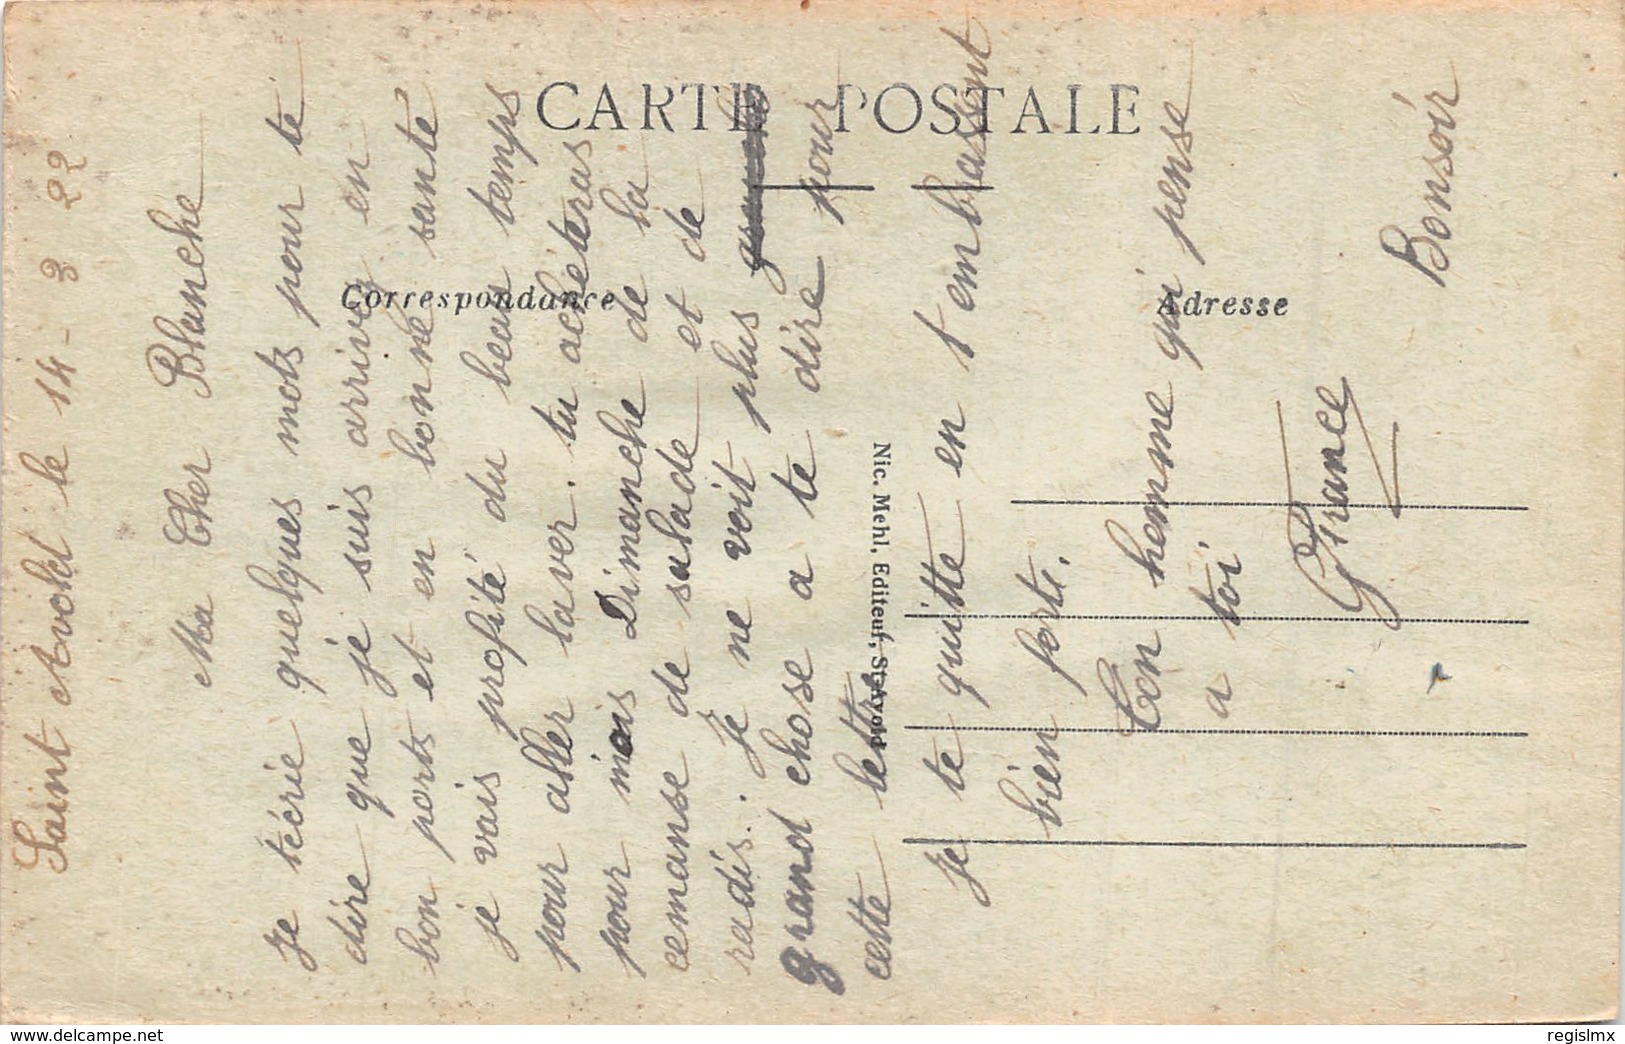 CARTE POSTALE
Correspondance
Adresse
Nic. Mehl, Editeur, St-Avold
Saint Avold le 14 - 3 22
Ma Cher Blanche
Je técrie quelques mots pour te
dire que je suis arrivez en
bon ports et en bonne sante
je vais profité du beau temps
pour aller laver. tu achéteras
pour mois Dimanche de la
cemanse de salade et de
radis. Je ne voit plus
grand chose a te dire pour
cette lettre
Je te quitte en t embrassent
bien forte.
Ton homme qui pense
a toi
France
Bonsoir
www.delcampe.net
regislmx